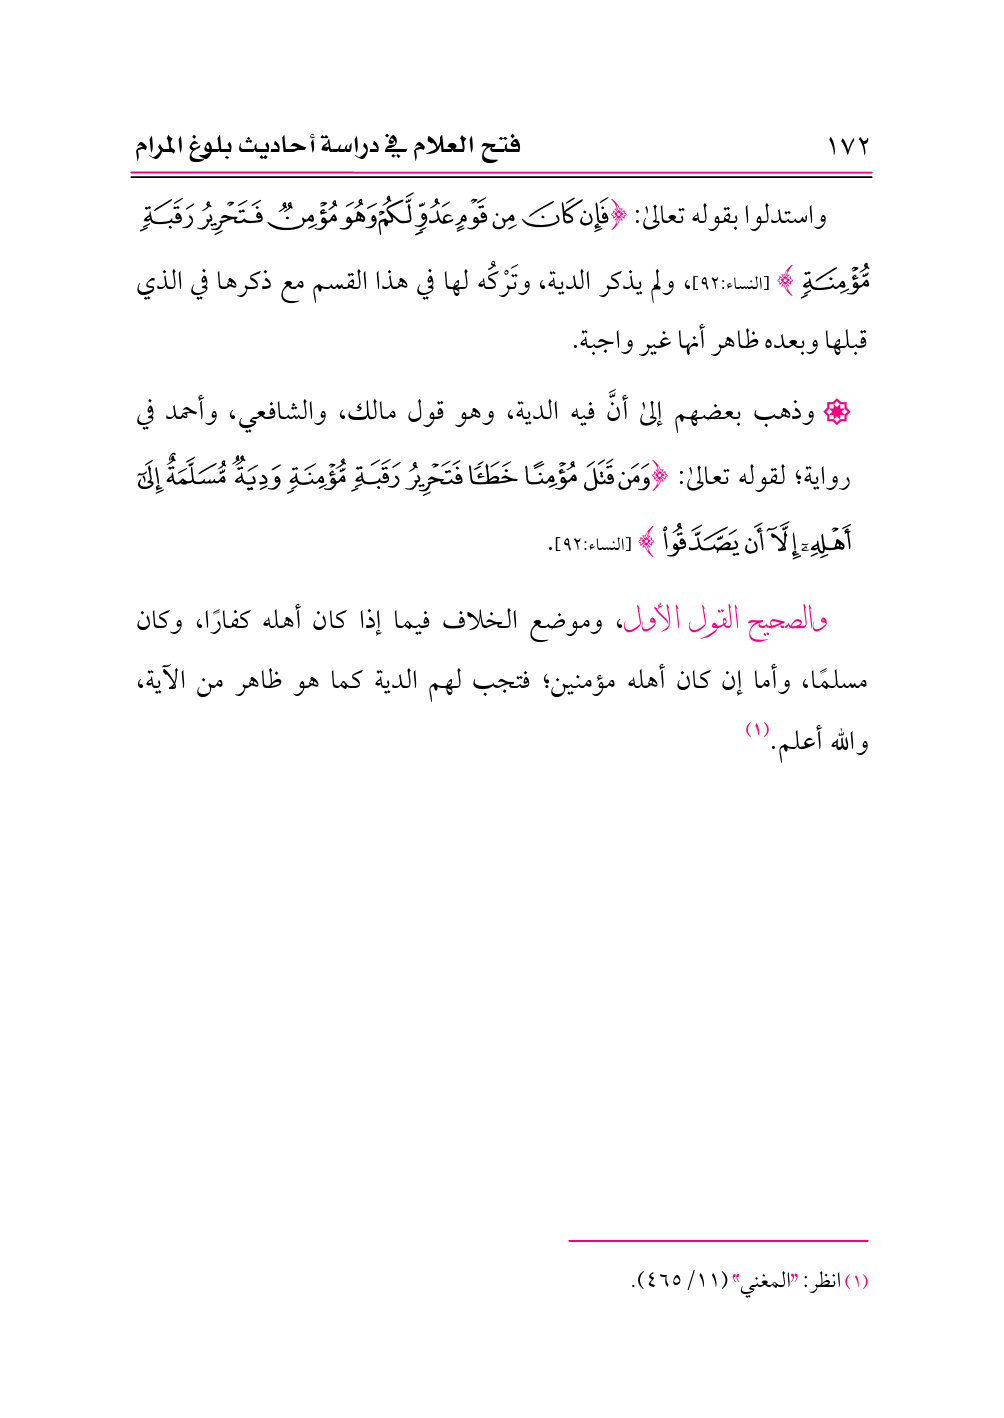 ١٧٢ فتح العلام في دراسة أحاديث بلوغ المرام
واستدلوا بقوله تعالىٰ: ﴿فَإِن كَانَ مِن قَوْمٍ عَدُوٍّ لَّكُمْ وَهُوَ مُؤْمِنٌ فَتَحْرِيرُ رَقَبَةٍ
مُّؤْمِنَةٍ﴾ [النساء:٩٢]، ولم يذكر الدية، وتَرْكُه لها في هذا القسم مع ذكرها في الذي
قبلها وبعده ظاهر أنها غير واجبة.
۞ وذهب بعضهم إلىٰ أنَّ فيه الدية، وهو قول مالك، والشافعي، وأحمد في
رواية؛ لقوله تعالىٰ: ﴿وَمَن قَتَلَ مُؤْمِنًا خَطَـًٔا فَتَحْرِيرُ رَقَبَةٍ مُّؤْمِنَةٍ وَدِيَةٌ مُّسَلَّمَةٌ إِلَىٰٓ
أَهْلِهِۦٓ إِلَّآ أَن يَصَّدَّقُوا۟﴾ [النساء:٩٢].
والصحيح القول الأول، وموضع الخلاف فيما إذا كان أهله كفارًا، وكان
مسلمًا، وأما إن كان أهله مؤمنين؛ فتجب لهم الدية كما هو ظاهر من الآية،
والله أعلم.(١)
(١) انظر: "المغني" (١١/ ٤٦٥).